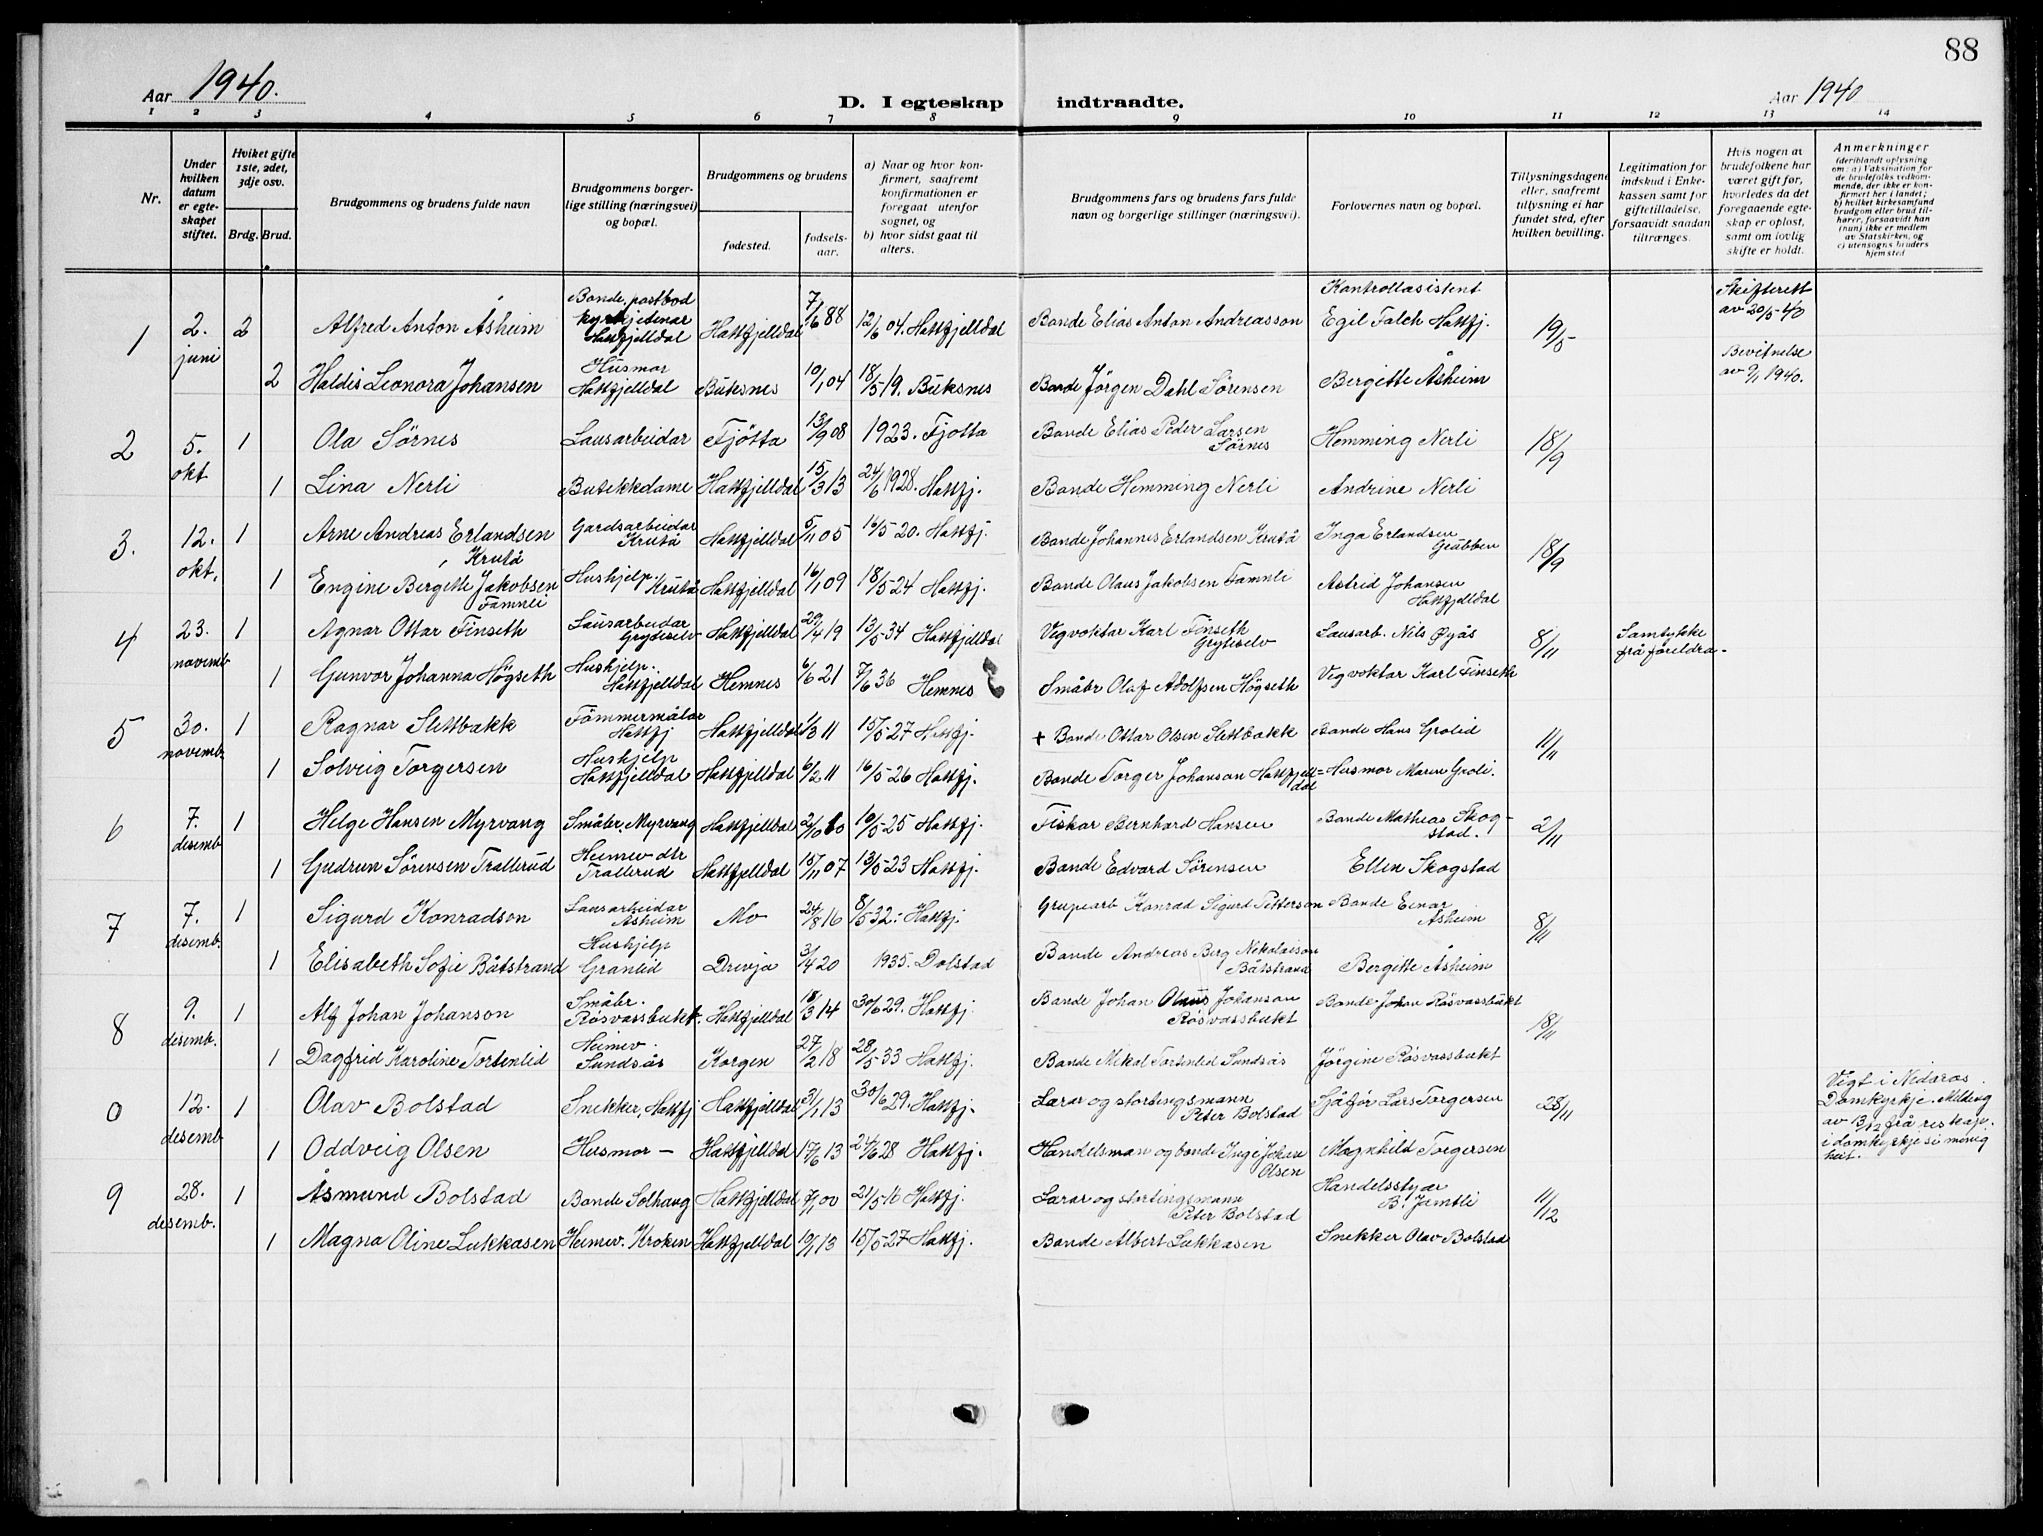 88
Aar 1940.
D. I egteskap indtraadte.
Aar 1940
1 2 3 4 5 6 7 8 9 10 11 12 13 14
Nr.
Under
hvilken
datum
er egte-
skapet
stiftet.
Hviket gifte
1ste, 2det,
3dje osv.
Brdg. Brud.
Brudgommens og brudens fulde navn
Brudgommens borger-
lige stilling (næringsvei)
og bopæl.
Brudgommens og brudens
fødested.
fødsels-
aar.
a) Naar og hvor kon-
firmert, saafremt
konfirmationen er
foregaat utenfor
sognet, og
b) hvor sidst gaat til
alters.
Brudgommens fars og brudens fars fulde
navn og borgerlige stillinger (næringsvei).
Forlovernes navn og bopæl.
Tillysningsdagene
eller, saafremt
tillysning ei har
fundet sted, efter
hvilken bevilling.
Legitimation for
indskud i Enke-
kassen samt for
giftetilladelse,
forsaavidt saadan
tiltrænges.
Hvis nogen av
brudefolkene har
været gift før,
hvorledes da det
foregaaende egte-
skap er opløst,
samt om lovlig
skifte er holdt.
Anmerkninger
(deriblandt oplysning
om: a) Vaksination for
de brudefolks vedkom-
mende, der ikke er kon-
firmert her i landet;
b) hvilket kirkesamfund
brudgom eller brud til-
hører, forsaavidt han
(hun) ikke er medlem
av Statskirken, og
c) utensogns bruders
hjemsted
1 2. juni 2 Alfred Anton Åsheim Bonde, postbod kyrkjetenar Hattfjelldal Hattfjelldal 7/6 88 12/6 04. Hattfjelldal Bonde Elias Anton Andreasson Kontrollasistent Egil Falch Hattfj. 19/5 Skifterett av 20/5-40
2 Haldis Leonora Johansen Husmor Hattfjelldal Buksnes 10/1 04 18/5 19. Buksnes Bonde Jörgen Dahl Sörensen Bergitte Åsheim Bevitnelse av 9/1 1940.
2 5. okt 1 Ola Sörnes Lausarbeidar Tjötta 13/9 08 1923. Tjotta Bonde Elias Peder Larsen Sörnes Hemming Nerli 18/9
1 Lina Nerli Butikkdame Hattfjelldal 15/3 13 24/6 1928. Hattfj. Bonde Hemming Nerli Andrine Nerli
3. 12. okt. 1 Arne Andreas Erlandsen Krutå Gardsarbeidar Krutå Hattfjelldal 5/11 05 16/5 20. Hattfj. Bonde Johannes Erlandsen Krutå Inga Erlandsen Grubben 18/9
1 Engine Bergitte Jakobsen Famnli Hushjelp. Krutå Hattfjelldal 16/1 09 18/5 24 Hattfj. Bonde Olaus Jakobsen Famnli Astrid Johansen Hattfjelldal
4 23. novemb 1 Agnar Ottar Finseth Lausarbeidar Gryteselv Hattfjelldal 20/4 19 13/5 34 Hattfjelldal Vegvoktar Karl Finseth Gryteselv Lausarb. Nils Øyås 8/11 Samtykke frå foreldra-
1 Gunvor Johanna Högseth Hushjelp. Hattfjelldal Hemnes 6/6 21 7/6 36 Hemnes Småbr Olaf Adolfsen Högseth Vegvoktar Karl Finseth
5 30. novemb. 1 Ragnar Slettbakk Tömmermålar Hattfj Hattfjelldal 1/3 11 15/5 27 Hattfj. + Bonde Ottar Olsen Slettbakk Bonde Hans Grolid 11/11
1 Solveig Torgersen Hushjelp Hattfjelldal Hattfjelldal 6/2 11 16/5 26 Hattfj. Bonde Torger Johanson Hattfjell=dal Husmor Maren Groli.
6 7. desemb 1 Helge Hansen Myrvang Småbr. Myrvang Hattfjelldal 2/10 10 16/5 25 Hattfj. Fiskar Bernhard Hansen Bonde Mathias Skog-stad. 2/11
1 Gudrun Sörensen Trallerud Heimev dtr Trallerud Hattfjelldal 15/11 07 13/5 23 Hattfj. Bonde Edvard Sörensen Ellen Skogstad
7 7. desemb. 1 Sigurd Konradson Lausarbeidar Åsheim Mo 24/8 16 8/5 32. Hattfj. Grupearb Konrad Sigurd Petterson Bonde Einar Åsheim 8/11
1 Elisabeth Sofie Båtstrand Hushjelp Granlid Drevja 3/4 20 1935. Dolstad Bonde Andreas Berg Nikolaison Båtstrand Bergitte Åsheim
8 9. desemb. 1 Alf Johan Johanson Småbr. Rösvassbukt. Hattfjelldal 18/3 14 30/6 29. Hattfj. Bonde Johan Olaus Johanson Rösvassbukt Bonde Johan Rösvassbukt 18/11
1 Dagfrid Karoline Tortenlid Heimev. Sundsås Korgen 27/2 18 28/5 33 Hattfj. Bonde Mikal Tortenlid Sundsås Jörgine Rösvassbukt
0 12. desemb 1 Olav Bolstad Snekker, Hattfj Hattfjelldal 31/1 13 30/6 29. Hattfj. Lærar og stortingsmann Peter Bolstad Sjåför Lars Torgersen 28/11 Vigt i Nidaros Domkyrkje. Melding av 13/12 frå reskap. i domkyrkje si menig heit.
1 Oddveig Olsen Husmor - Hattfjelldal 17/6 13 24/6 28 Hattfj. Handelsman og bonde Inge Johan Olsen Magnhild Torgersen
9 28. desemb. 1 Åsmund Bolstad Bonde Solhaug Hattfjelldal 7/1 00 21/5 16 Hattfj. Lærar og stortingsmann Peter Bolstad Handelsstyar B. Jamtli 11/12
1 Magna Oline Lukkasen Heimev. Kroken Hattfjelldal 10/1 13 15/5 27 Hattfj. Bonde Albert Lukkasen Snekker Olav Bolstad